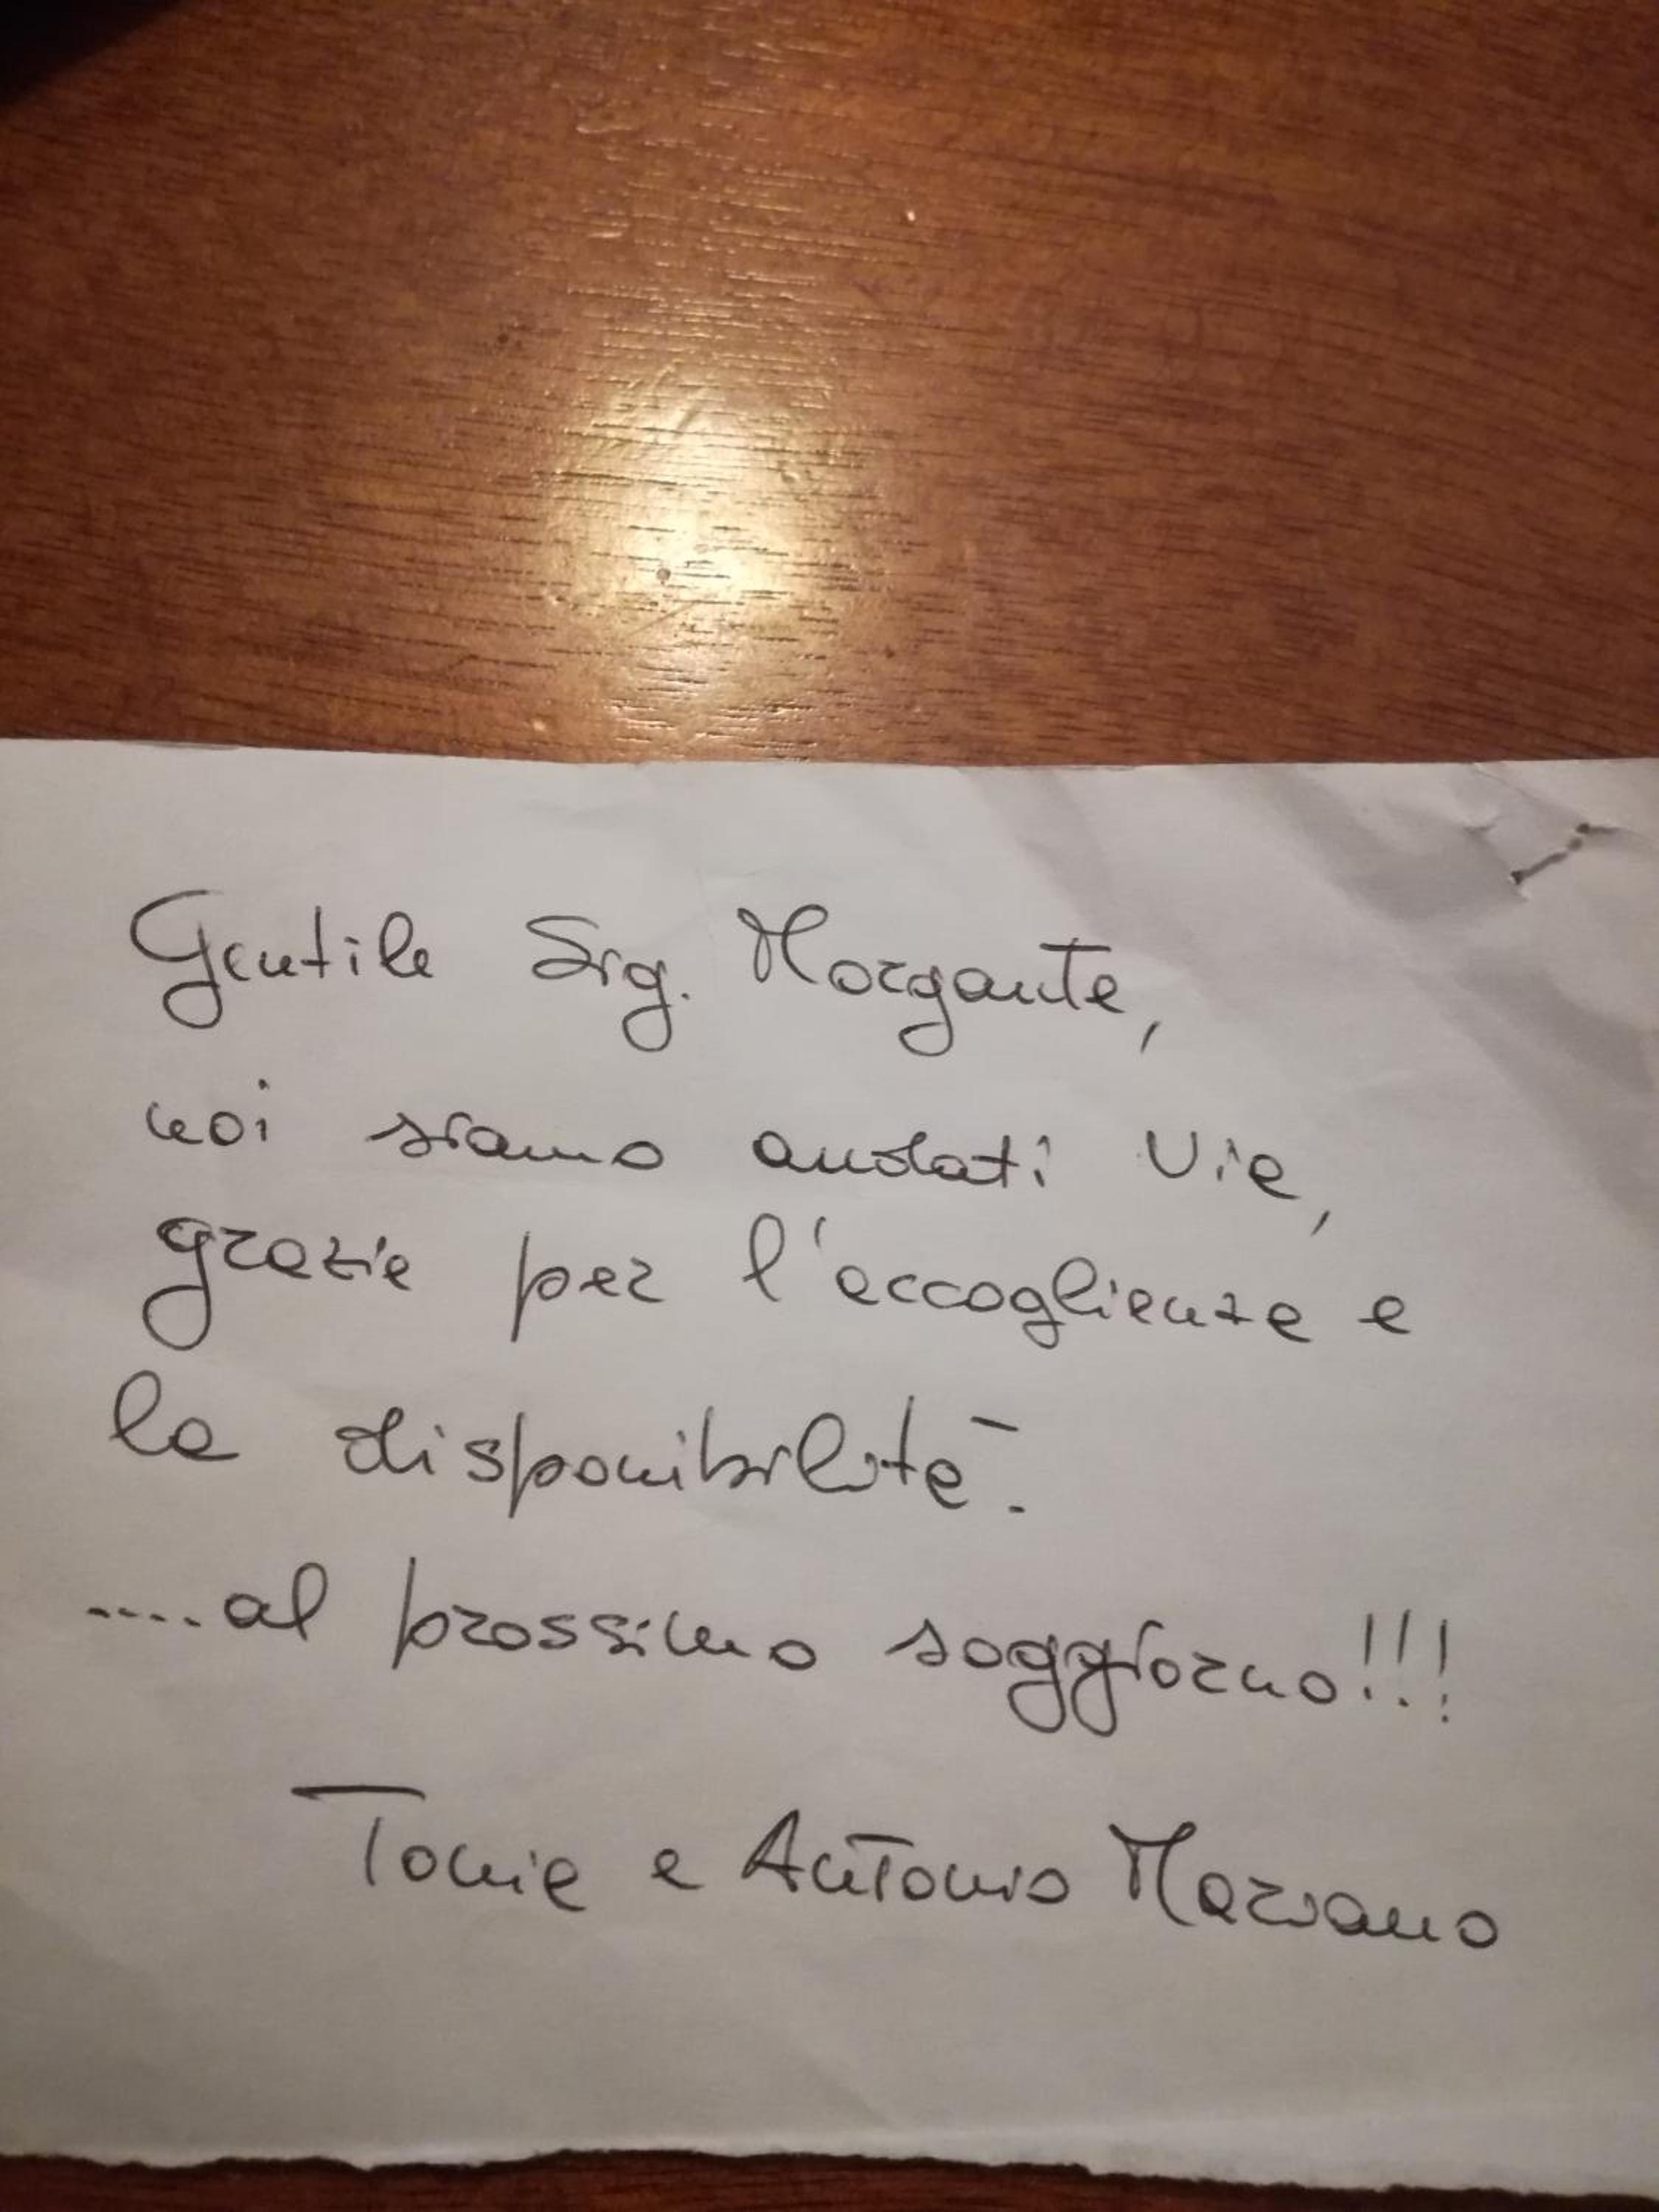 Gentile Sig. Morgante,
noi siamo andati via,
grazie per l'accoglienza e
la disponibilità.
....al prossimo soggiorno!!!
Tonia e Antonio Marsano